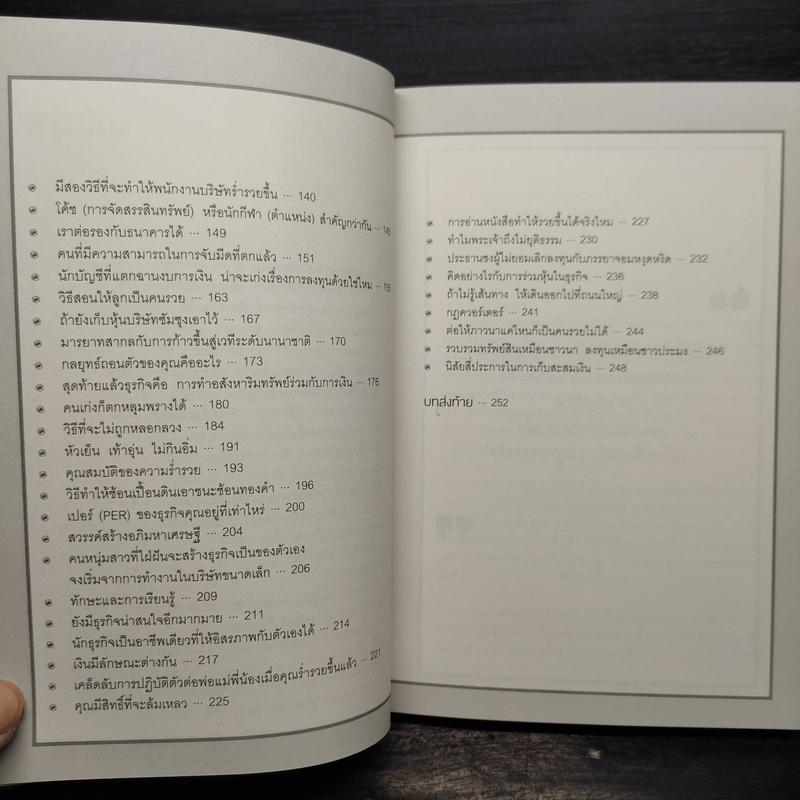 มีสองวิธีที่จะทำให้พนักงานบริษัทร่ำรวยขึ้น ... 140
โค้ช (การจัดสรรสินทรัพย์) หรือนักกีฬา (ตำแหน่ง) สำคัญกว่ากัน ... 146
เราต่อรองกับธนาคารได้ ... 149
คนที่มีความสามารถในการจับมีดที่ตกแล้ว ... 151
นักบัญชีที่แตกฉานงบการเงิน น่าจะเก่งเรื่องการลงทุนด้วยใช่ไหม ... 155
วิธีสอนให้ลูกเป็นคนรวย ... 163
ถ้ายังเก็บหุ้นบริษัทซัมซุงเอาไว้ ... 167
มารยาทสากลกับการก้าวขึ้นสู่เวทีระดับนานาชาติ ... 170
กลยุทธ์ถอนตัวของคุณคืออะไร ... 173
สุดท้ายแล้วธุรกิจคือ การทำอสังหาริมทรัพย์ร่วมกับการเงิน ... 176
คนเก่งก็ตกหลุมพรางได้ ... 180
วิธีที่จะไม่ถูกหลอกลวง ... 184
หัวเย็น เท้าอุ่น ไม่กินอิ่ม ... 191
คุณสมบัติของความร่ำรวย ... 193
วิธีทำให้ช้อนเปื้อนดินเอาชนะช้อนทองคำ ... 196
เปอร์ (PER) ของธุรกิจคุณอยู่ที่เท่าไหร่ ... 200
สวรรค์สร้างอภิมหาเศรษฐี ... 204
คนหนุ่มสาวที่ใฝ่ฝันจะสร้างธุรกิจเป็นของตัวเอง
จงเริ่มจากการทำงานในบริษัทขนาดเล็ก ... 206
ทักษะและการเรียนรู้ ... 209
ยังมีธุรกิจน่าสนใจอีกมากมาย ... 211
นักธุรกิจเป็นอาชีพเดียวที่ให้อิสรภาพกับตัวเองได้ ... 214
เงินมีลักษณะต่างกัน ... 217
เคล็ดลับการปฏิบัติตัวต่อพ่อแม่พี่น้องเมื่อคุณร่ำรวยขึ้นแล้ว ... 221
คุณมีสิทธิ์ที่จะล้มเหลว ... 225
การอ่านหนังสือทำให้รวยขึ้นได้จริงไหม ... 227
ทำไมพระเจ้าถึงไม่ยุติธรรม ... 230
ประธานซงผู้ไม่ยอมเลิกลงทุนกับภรรยาจอมหงุดหงิด ... 232
คิดอย่างไรกับการร่วมหุ้นในธุรกิจ ... 236
ถ้าไม่รู้เส้นทาง ให้เดินออกไปที่ถนนใหญ่ ... 238
กฎควอร์เตอร์ ... 241
ต่อให้ภาวนาแค่ไหนก็เป็นคนรวยไม่ได้ ... 244
รวบรวมทรัพย์สินเหมือนชาวนา ลงทุนเหมือนชาวประมง ... 246
นิสัยสี่ประการในการเก็บสะสมเงิน ... 248
บทส่งท้าย ... 252